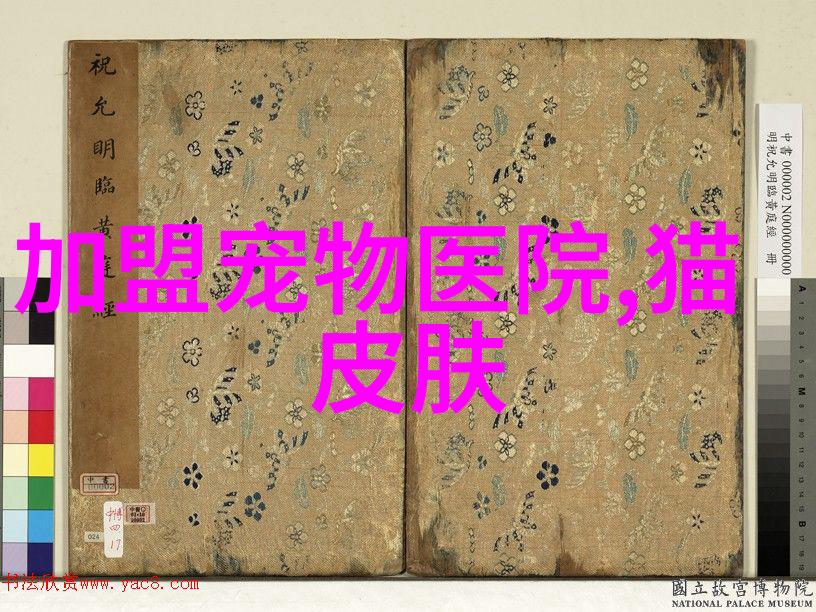 祝允明臨黃庭經
加盟宠物医院,猫
皮肤
中書 000002 N000000000
明祝允明臨黃庭經 冊
中書
00002
024
四
17
A
M
B
书法欣赏www.yac8.com
國立故宮博物院
NATIONAL PALACE MUSEUM